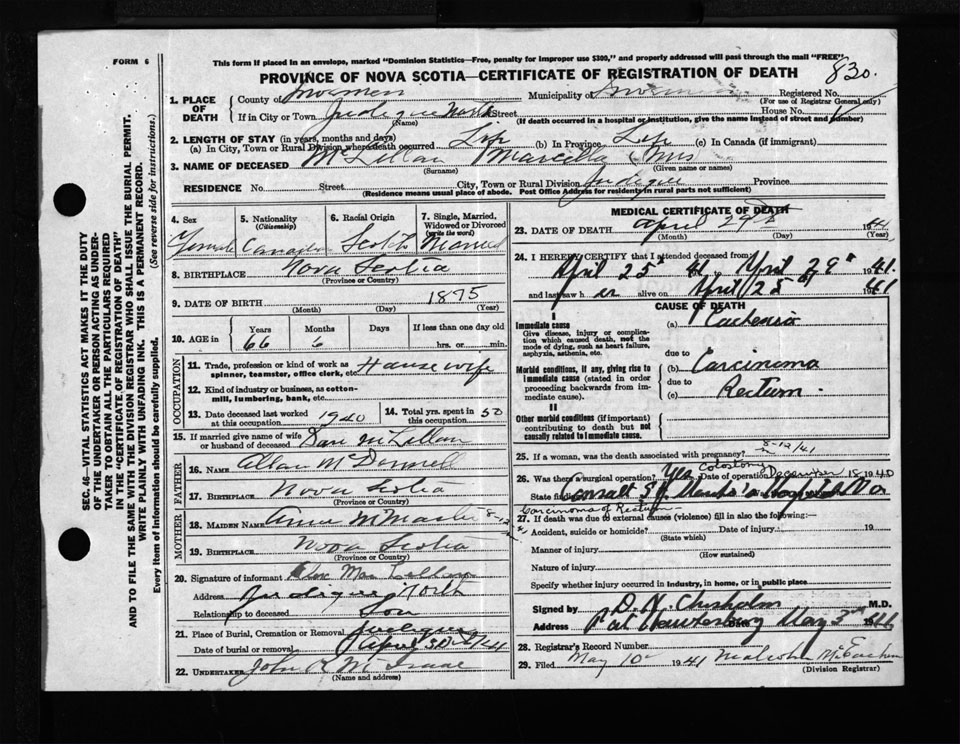 FORM 6
This form if placed in an envelope, marked "Dominion Statistics—Free, penalty for improper use $300," and properly addressed will pass through the mail "FREE"
PROVINCE OF NOVA SCOTIA—CERTIFICATE OF REGISTRATION OF DEATH
830.
1. PLACE OF DEATH
County of Inverness Municipality of Inverness Registered No.
(For use of Registrar General only)
If in City or Town Judique North Street House No.
(Name) (If death occurred in a hospital or institution, give the name instead of street and number)
2. LENGTH OF STAY (in years, months and days)
(a) In City, Town or Rural Division where death occurred Life (b) In Province Life (c) In Canada (if immigrant)
3. NAME OF DECEASED McLellan Marcella Mrs
(Surname) (Given name or names)
RESIDENCE No. Street City, Town or Rural Division Judique Province
(Residence means usual place of abode. Post Office Address for residents in rural parts not sufficient)
4. Sex Female
5. Nationality (Citizenship) Canadian
6. Racial Origin Scotch
7. Single, Married, Widowed or Divorced (write the word) Married
8. BIRTHPLACE Nova Scotia
(Province or Country)
9. DATE OF BIRTH 1875
(Month) (Day) (Year)
10. AGE in Years Months Days If less than one day old
66 6 hrs. or min.
OCCUPATION
11. Trade, profession or kind of work as spinner, teamster, office clerk, etc. Housewife
12. Kind of industry or business, as cotton-mill, lumbering, bank, etc.
13. Date deceased last worked at this occupation 1940
14. Total yrs. spent in this occupation 50
15. If married give name of wife or husband of deceased Dan McLellan
FATHER
16. NAME Allan McDonnell
17. BIRTHPLACE Nova Scotia
(Province or Country)
MOTHER
18. MAIDEN NAME Anna McMaster
19. BIRTHPLACE Nova Scotia
(Province or Country)
20. Signature of informant
Address Judique North
Relationship to deceased Son
21. Place of Burial, Cremation or Removal Judique
Date of burial or removal April 30
22. UNDERTAKER John R McIsaac
(Name and address)
MEDICAL CERTIFICATE OF DEATH
23. DATE OF DEATH April 29th 1941
(Month) (Day) (Year)
24. I HEREBY CERTIFY that I attended deceased from
April 25th 41, April 29th 1941.
and last saw her alive on April 25th 1941
CAUSE OF DEATH
I
Immediate cause
Give disease, injury or complication which caused death, not the mode of dying, such as heart failure, asphyxia, asthenia, etc.
(a) Cachexia
due to
Morbid conditions, if any, giving rise to immediate cause (stated in order proceeding backwards from immediate cause).
(b) Carcinoma
due to
(c) Rectum.
II
Other morbid conditions (if important) contributing to death but not causally related to immediate cause.
25. If a woman, was the death associated with pregnancy?
8-12/41
26. Was there a surgical operation? Yes Colostomy Date of operation December 18 1940
State findings Consult St Martha's Hospital
Carcinoma of Rectum
27. If death was due to external causes (violence) fill in also the following:—
Accident, suicide or homicide? Date of injury 19
(State which)
Manner of injury
(How sustained)
Nature of injury
Specify whether injury occurred in industry, in home, or in public place
Signed by D. N. Chisholm M.D.
Address Port Hawkesbury Date May 3rd
28. Registrar's Record Number
29. Filed May 10 1941 Malcolm McEachern
(Division Registrar)
SEC. 46—VITAL STATISTICS ACT MAKES IT THE DUTY
OF THE UNDERTAKER OR PERSON ACTING AS UNDER-
TAKER TO OBTAIN ALL THE PARTICULARS REQUIRED
IN THE "CERTIFICATE OF REGISTRATION OF DEATH"
AND TO FILE THE SAME WITH THE DIVISION REGISTRAR WHO SHALL ISSUE THE BURIAL PERMIT.
WRITE PLAINLY WITH UNFADING INK. THIS IS A PERMANENT RECORD.
Every item of Information should be carefully supplied. (See reverse side for instructions.)